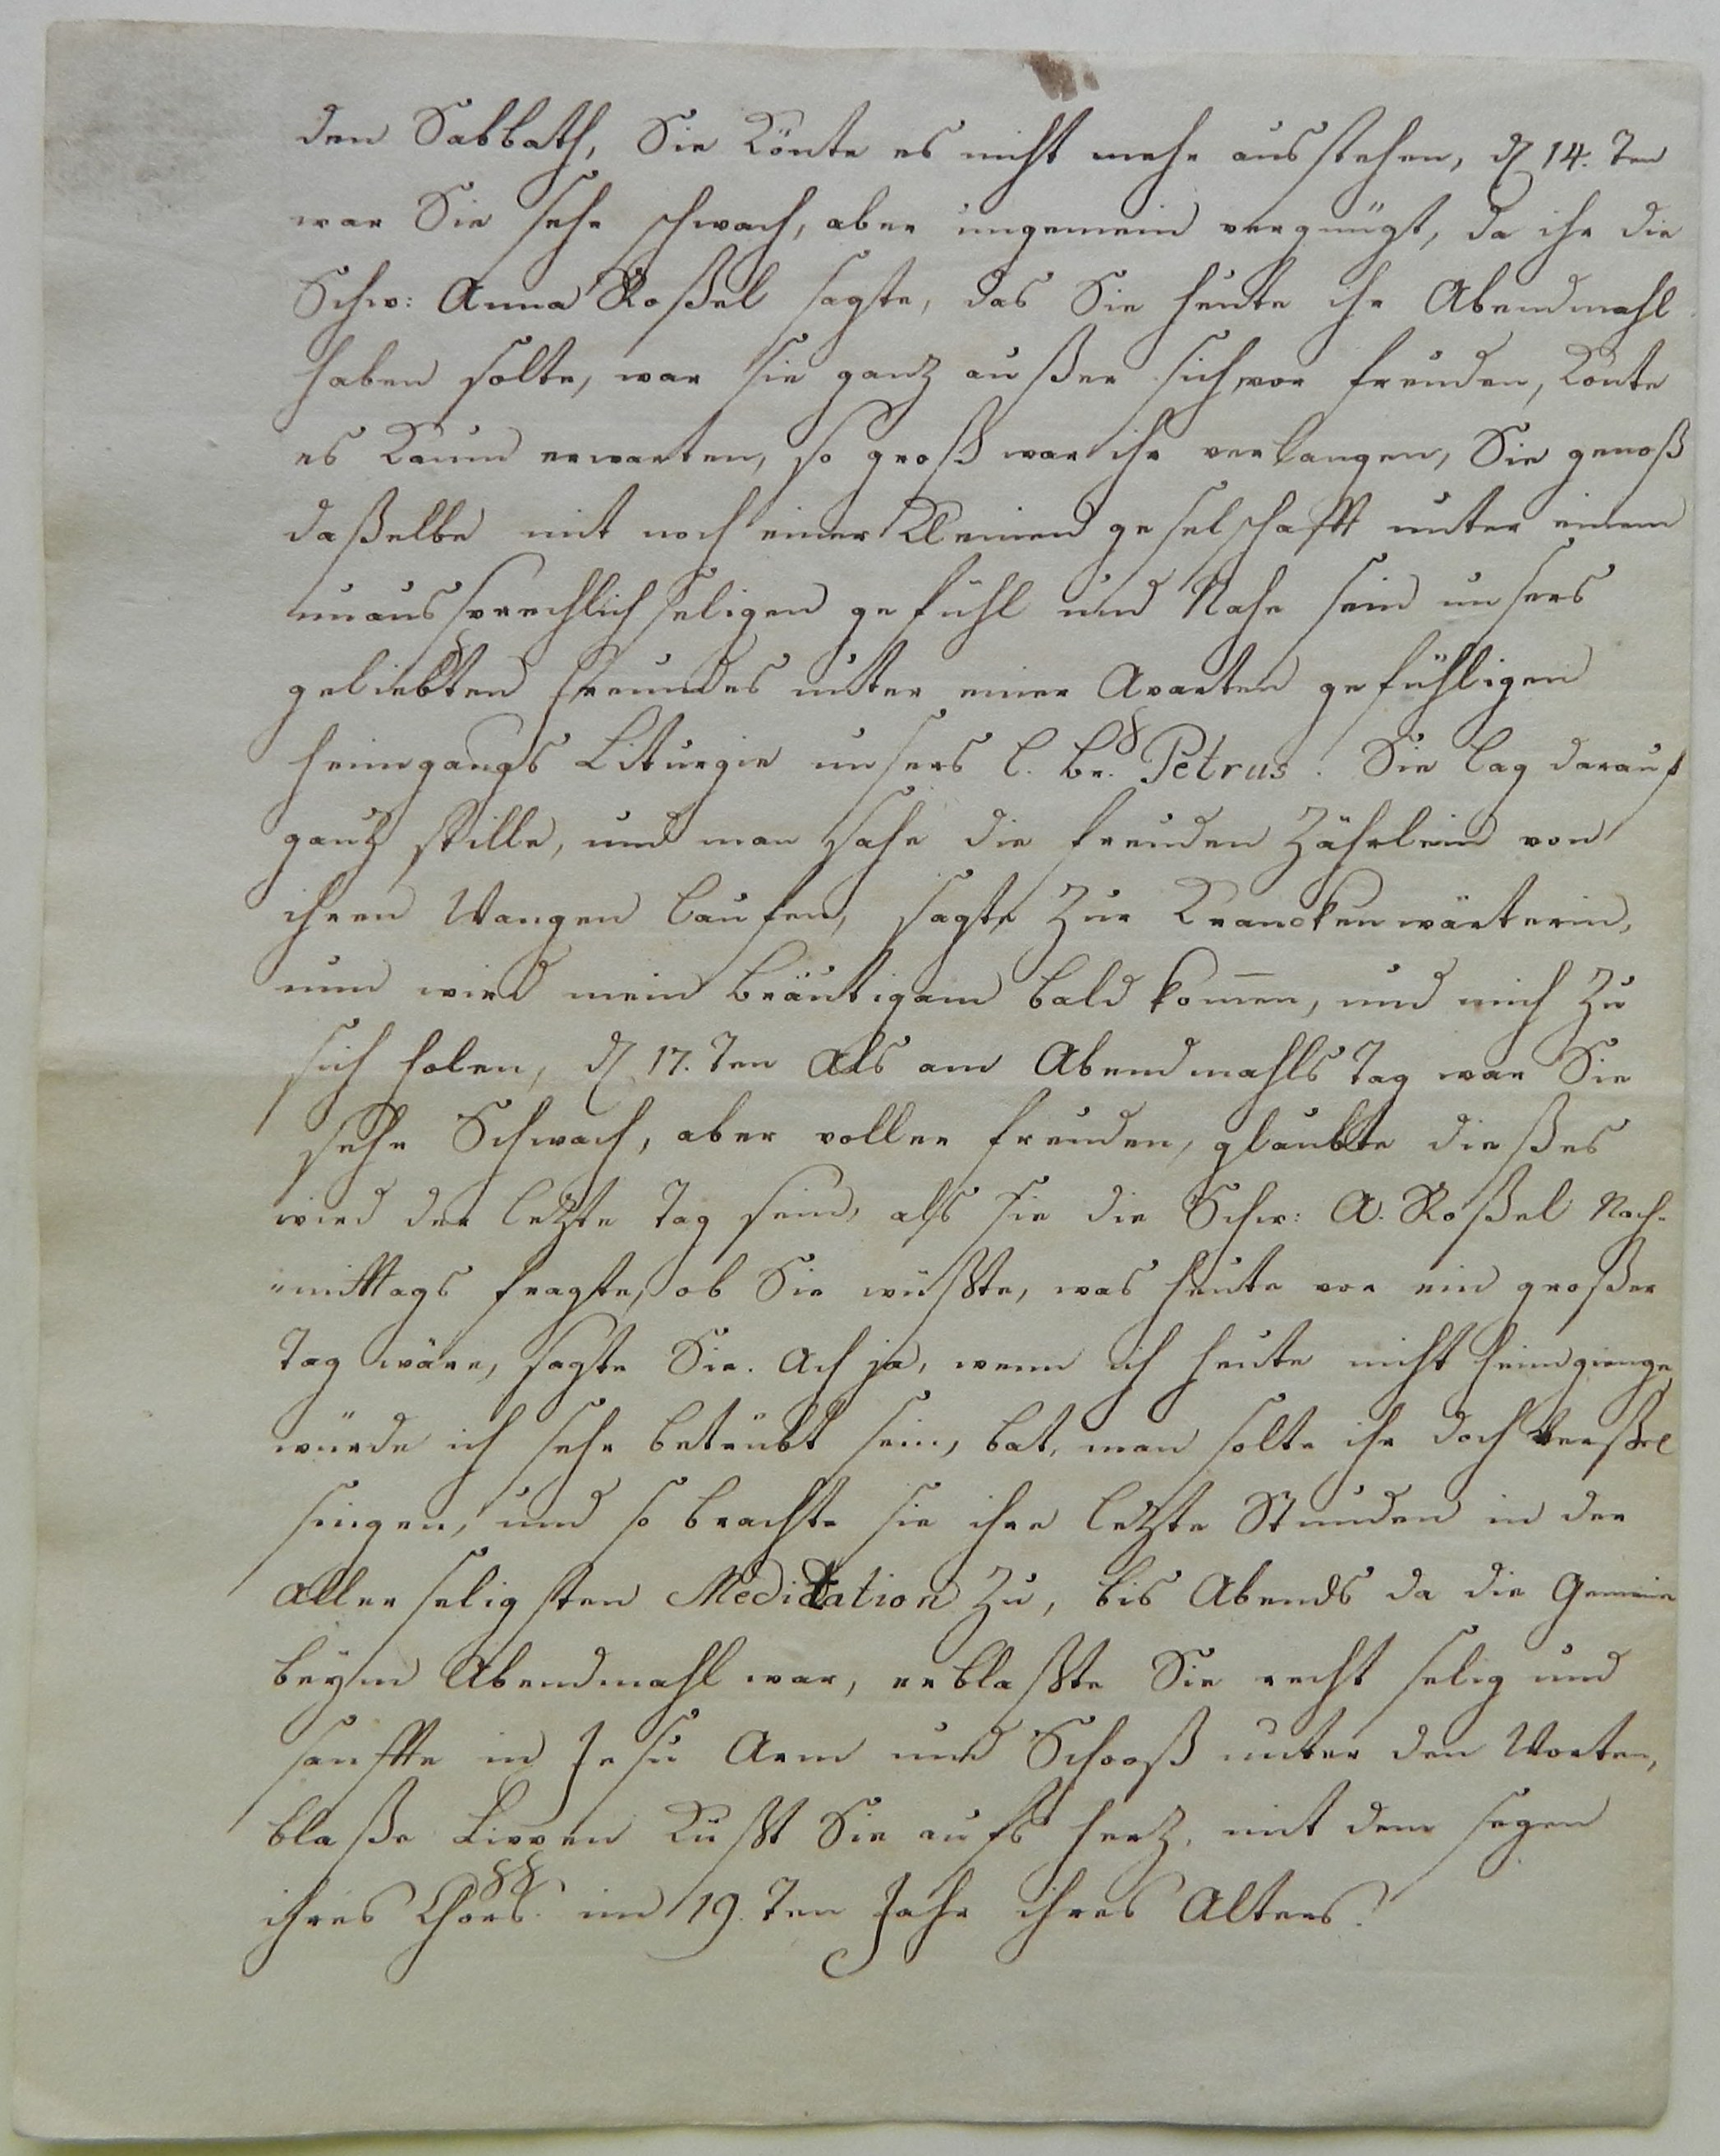 den Sabbath, Sie Könte es nicht mehr ausstehen, d 14. Ten
war Sie sehr schwach, aber ungemein vergnügt, da ihr die
Schw: Anna Roßel sagte, das Sie heute ihr Abendmahl
haben solte, war sie ganz außer sich vor freuden, Konte
es Kaum erwarten, so groß war ihr verlangen, Sie genoß
daßelbe mit noch einer Kleinen geselschafft unter einem
unaussprechlich seligen gefühl und Nahe sein unsers
geliebten freundes unter einer Aparten gefühligen
heimgangs Liturgie unsers l. br. Petrus. Sie lag darauf
ganz stille, und man sahe die freuden Zährlein von
ihren Wangen laufen, sagte Zur Kranckenwärterin,
nun wird mein bräutigam bald kom̄en, und mich Zu
sich holen, d 17. Ten Als am Abendmahls Tag war Sie
sehr Schwach, aber voller freuden, glaubte dießes
wird der lezte Tag sein, als sie die Schw: A. Roßel Nach-
mittags fragte, ob Sie wüßte, was heute vor ein großer
Tag wäre, sagte Sie. Ach ja, wenn ich heute nicht heimgienge
würde ich sehr betrübt sein, bat, man solte ihr doch verßel
singen, und so brachte sie ihre lezte Stunden in der
Aller seligsten Meditation Zu, bis Abends da die Gemeine
beym Abendmahl war, erblaßte Sie recht selig und
sanffte in Jesu Arm und Schooß unter den Worten,
blaße Lippen Küßt Sie aufs herz, mit dem segen
ihres Chors. im 19. Ten Jahr ihres Alters.